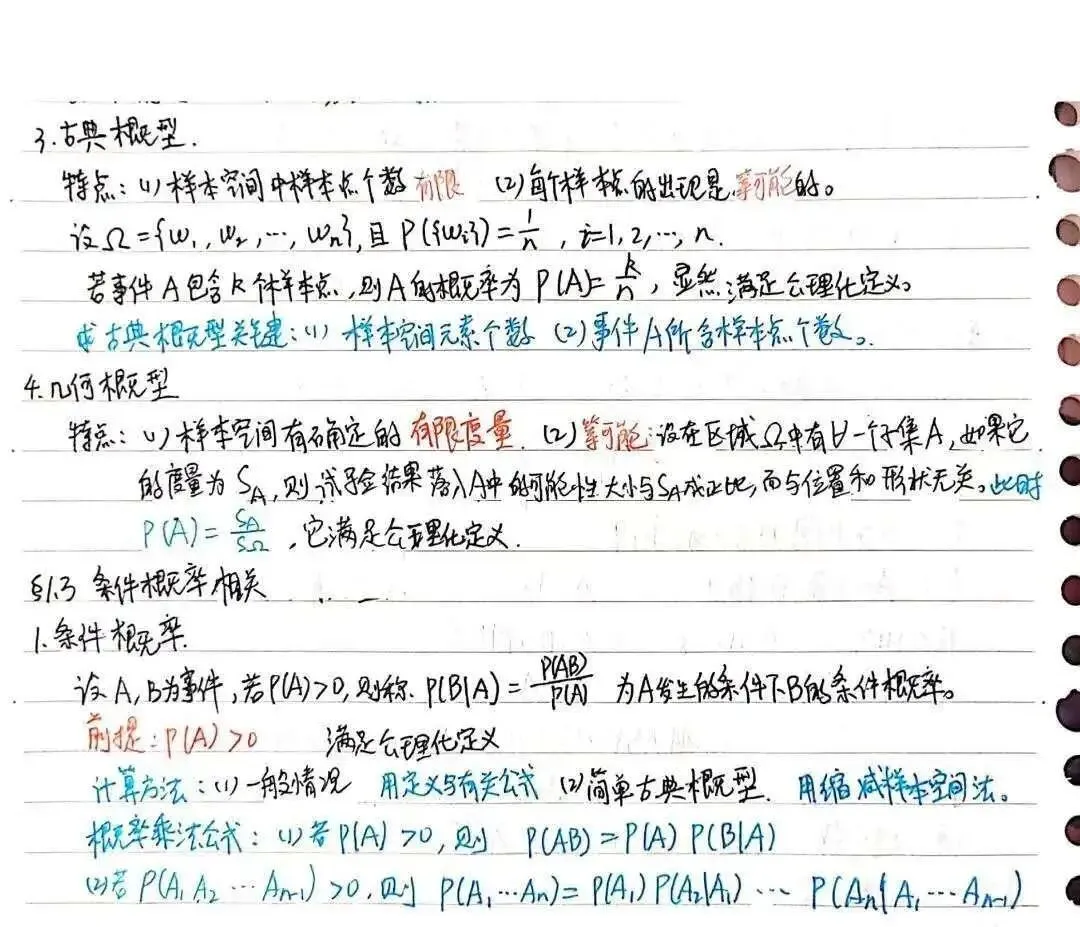 3.古典概型.
特点：(1)样本空间中样本点个数有限 (2)每个样本点的出现是等可能的。
设Ω={ω₁,ω₂,…,ωn},且P({ωi})=1/n, i=1,2,…,n.
若事件A包含k个样本点,则A的概率为P(A)=k/n,显然满足公理化定义。
求古典概型关键：(1)样本空间元素个数 (2)事件A所含样本点个数。
4.几何概型
特点：(1)样本空间有确定的有限度量.(2)等可能:设在区域Ω中有∀一个子集A,如果它
的度量为S_A,则试验结果落入A中的可能性大小与S_A成正比,而与位置和形状无关。此时
P(A)=S_A/S_Ω,它满足公理化定义.
§1.3 条件概率相关
1.条件概率.
设A,B为事件,若P(A)>0,则称.P(B|A)=P(AB)/P(A) 为A发生的条件下B的条件概率。
前提:P(A)>0 满足公理化定义
计算方法：(1)一般情况 用定义与有关公式 (2)简单古典概型. 用缩减样本空间法。
概率乘法公式：(1)若P(A)>0,则 P(AB)=P(A)P(B|A)
(2)若P(A₁A₂…An-1)>0,则 P(A₁…An)=P(A₁)P(A₂|A₁)…P(An|A₁…An-1)